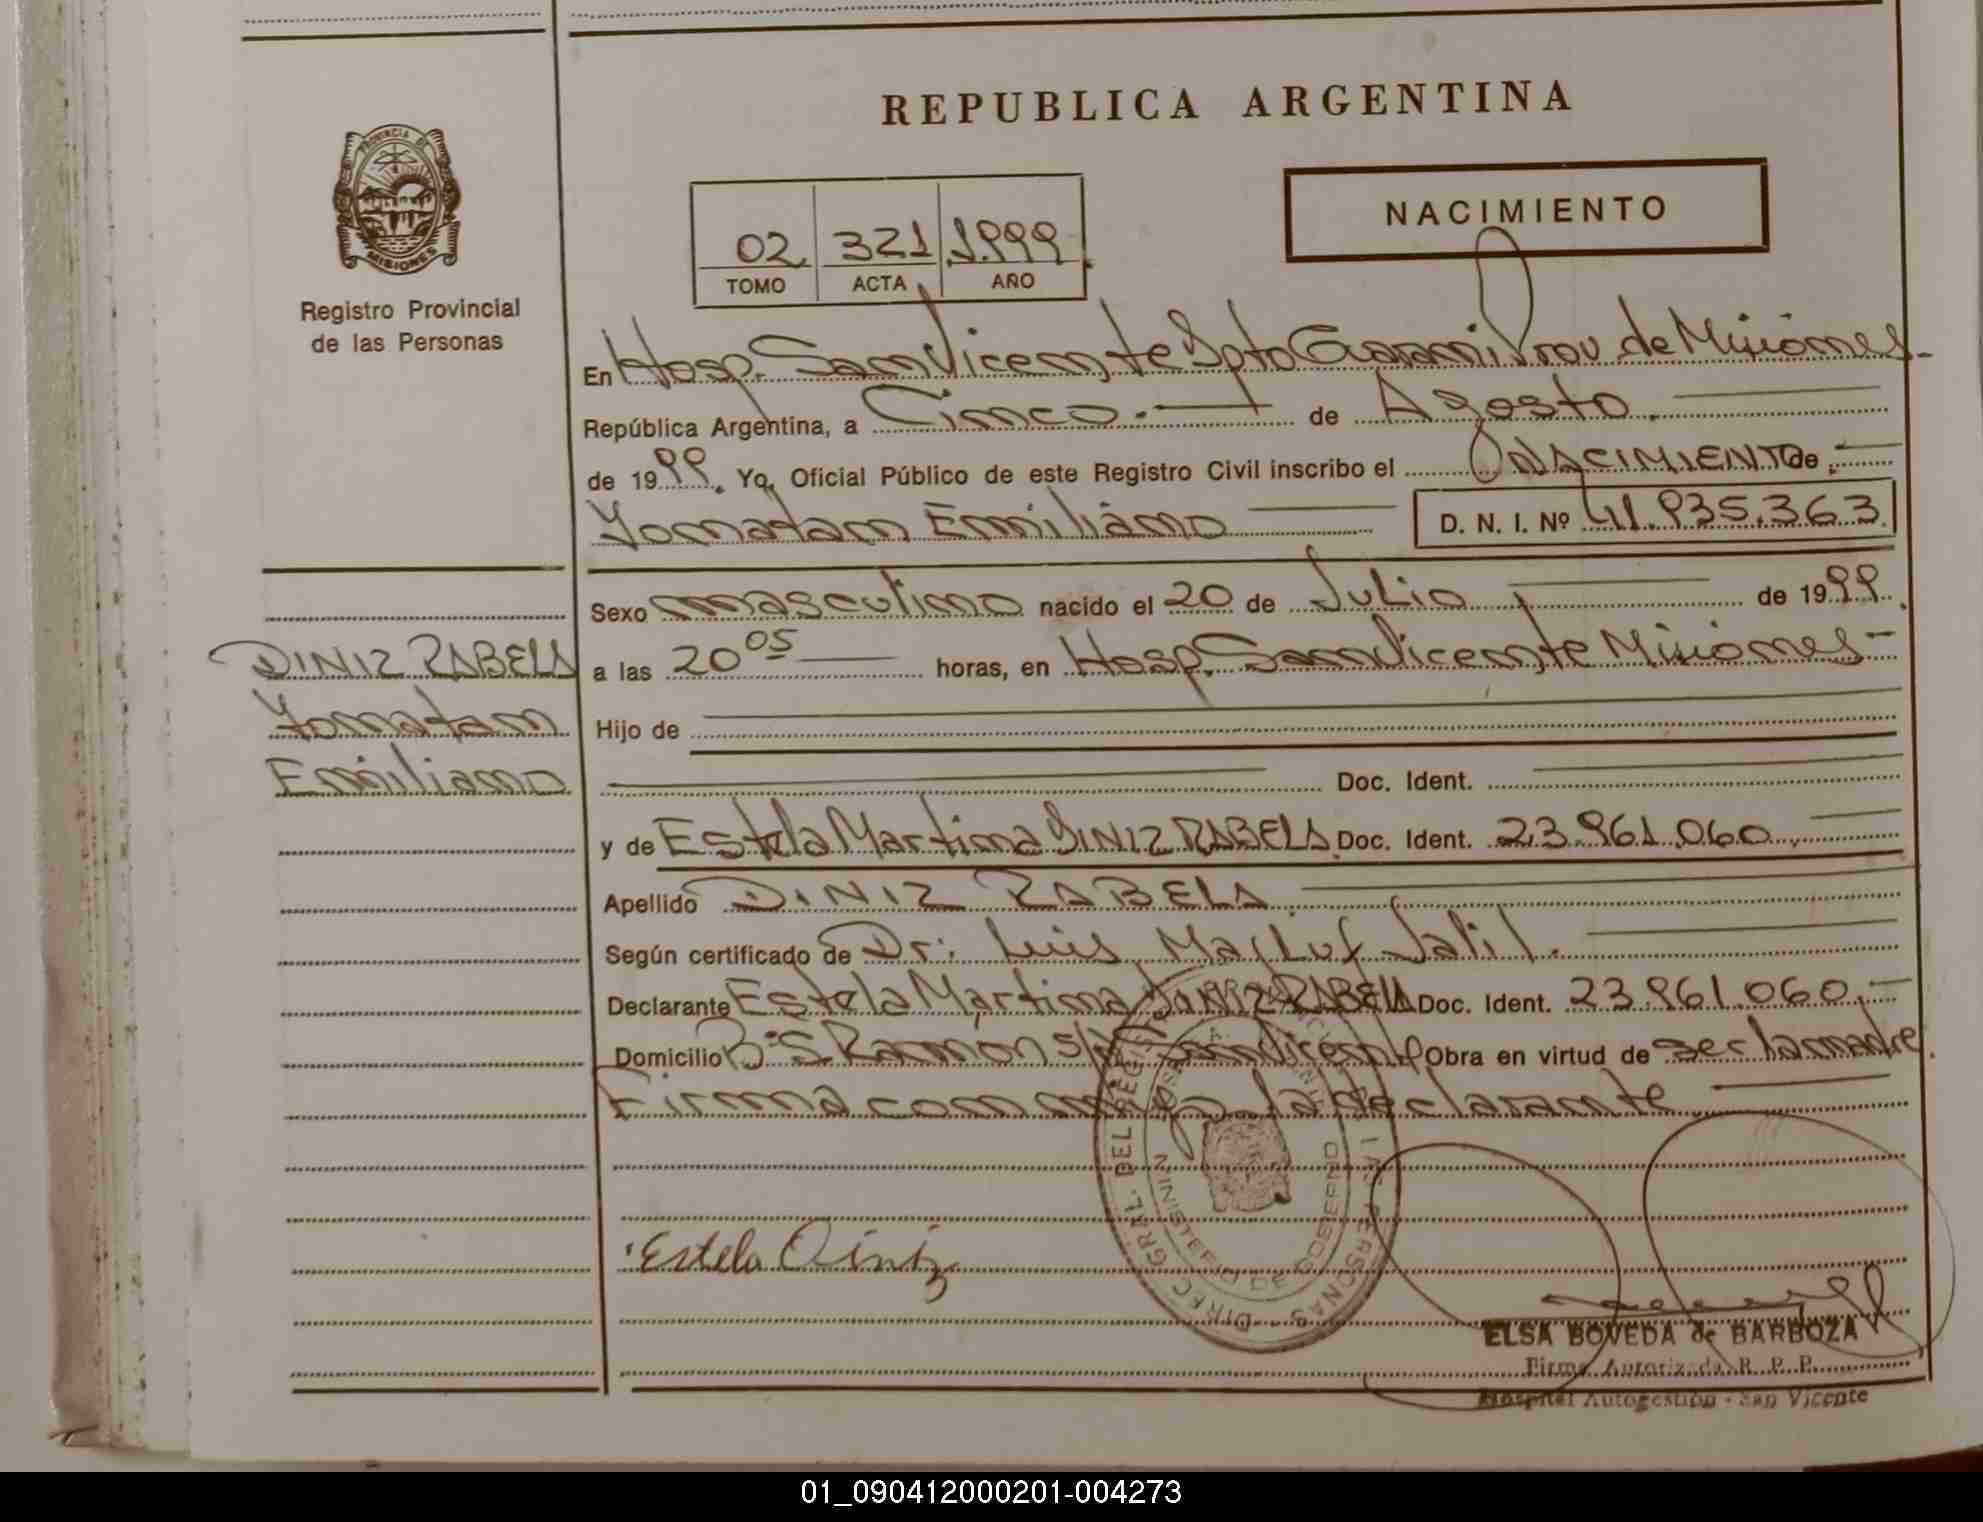 REPUBLICA ARGENTINA
NACIMIENTO
PROVINCIA DE
MISIONES
Registro Provincial
de las Personas
02 321 1.999
TOMO ACTA AÑO
En Hosp. San Vicente Dpto Guarani Prov de Misiones
República Argentina, a Cinco.- de Agosto.
de 1999. Yo, Oficial Público de este Registro Civil inscribo el NACIMIENTO de
Yonatam Emiliano D. N. I. Nº 41.935.363
Sexo masculino nacido el 20 de Julio de 1999.
DINIZ RABELA
Yonatam
Emiliano
a las 20 05 horas, en Hosp. San Vicente Misiones -
Hijo de
Doc. Ident.
y de Estela Martina DINIZ RABELA Doc. Ident. 23.961.060.
Apellido DINIZ RABELA
Según certificado de Dr: Luis Maluf Jalil.
Declarante Estela Martina DINIZ RABELA Doc. Ident. 23.961.060.-
Domicilio Bº S. Ramon s/n San Vicente Obra en virtud de ser la madre
Firma conmigo la declarante
DIREC. GRAL. DEL REGISTRO LAS PERSONAS
MINISTERIO DE GOBIERNO
Estela Diniz
ELSA BOVEDA de BARBOZA
Firma Autorizada R. P. P.
Hospital Autogestión - San Vicente
01_090412000201-004273